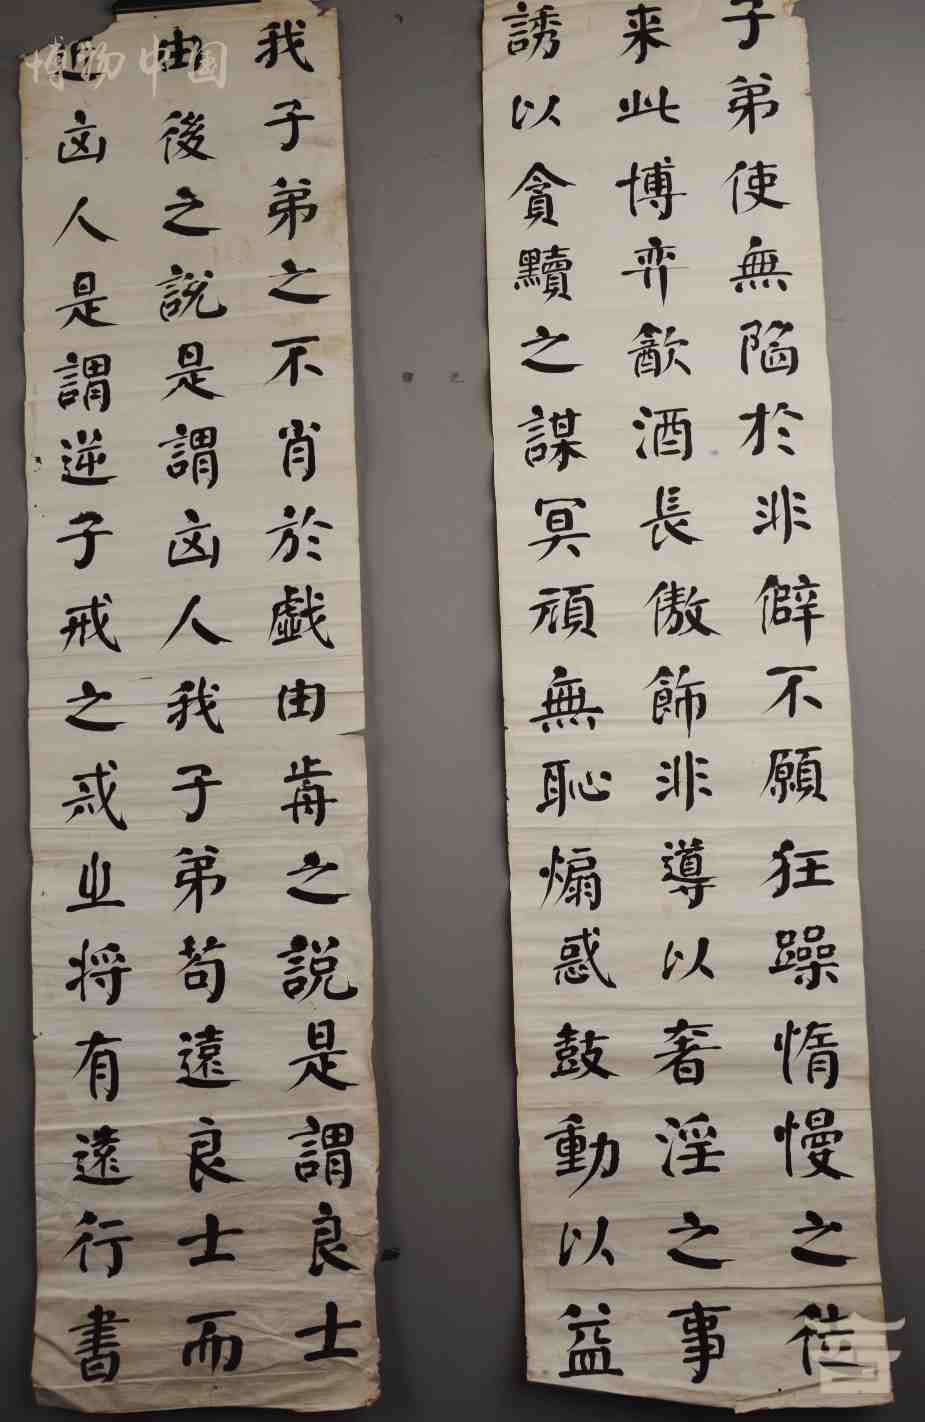 子弟使無陷於非僻不願狂躁惰慢之徒
来此博弈㱃酒長傲飾非導以奢淫之事
誘以貪黷之謀冥頑無恥煽惑鼓動以益
我子弟之不肖於戯由歬之說是謂良士
由後之說是謂㐫人我子弟苟遠良士而
近㐫人是謂逆子戒之戒之将有遠行書
博物中國